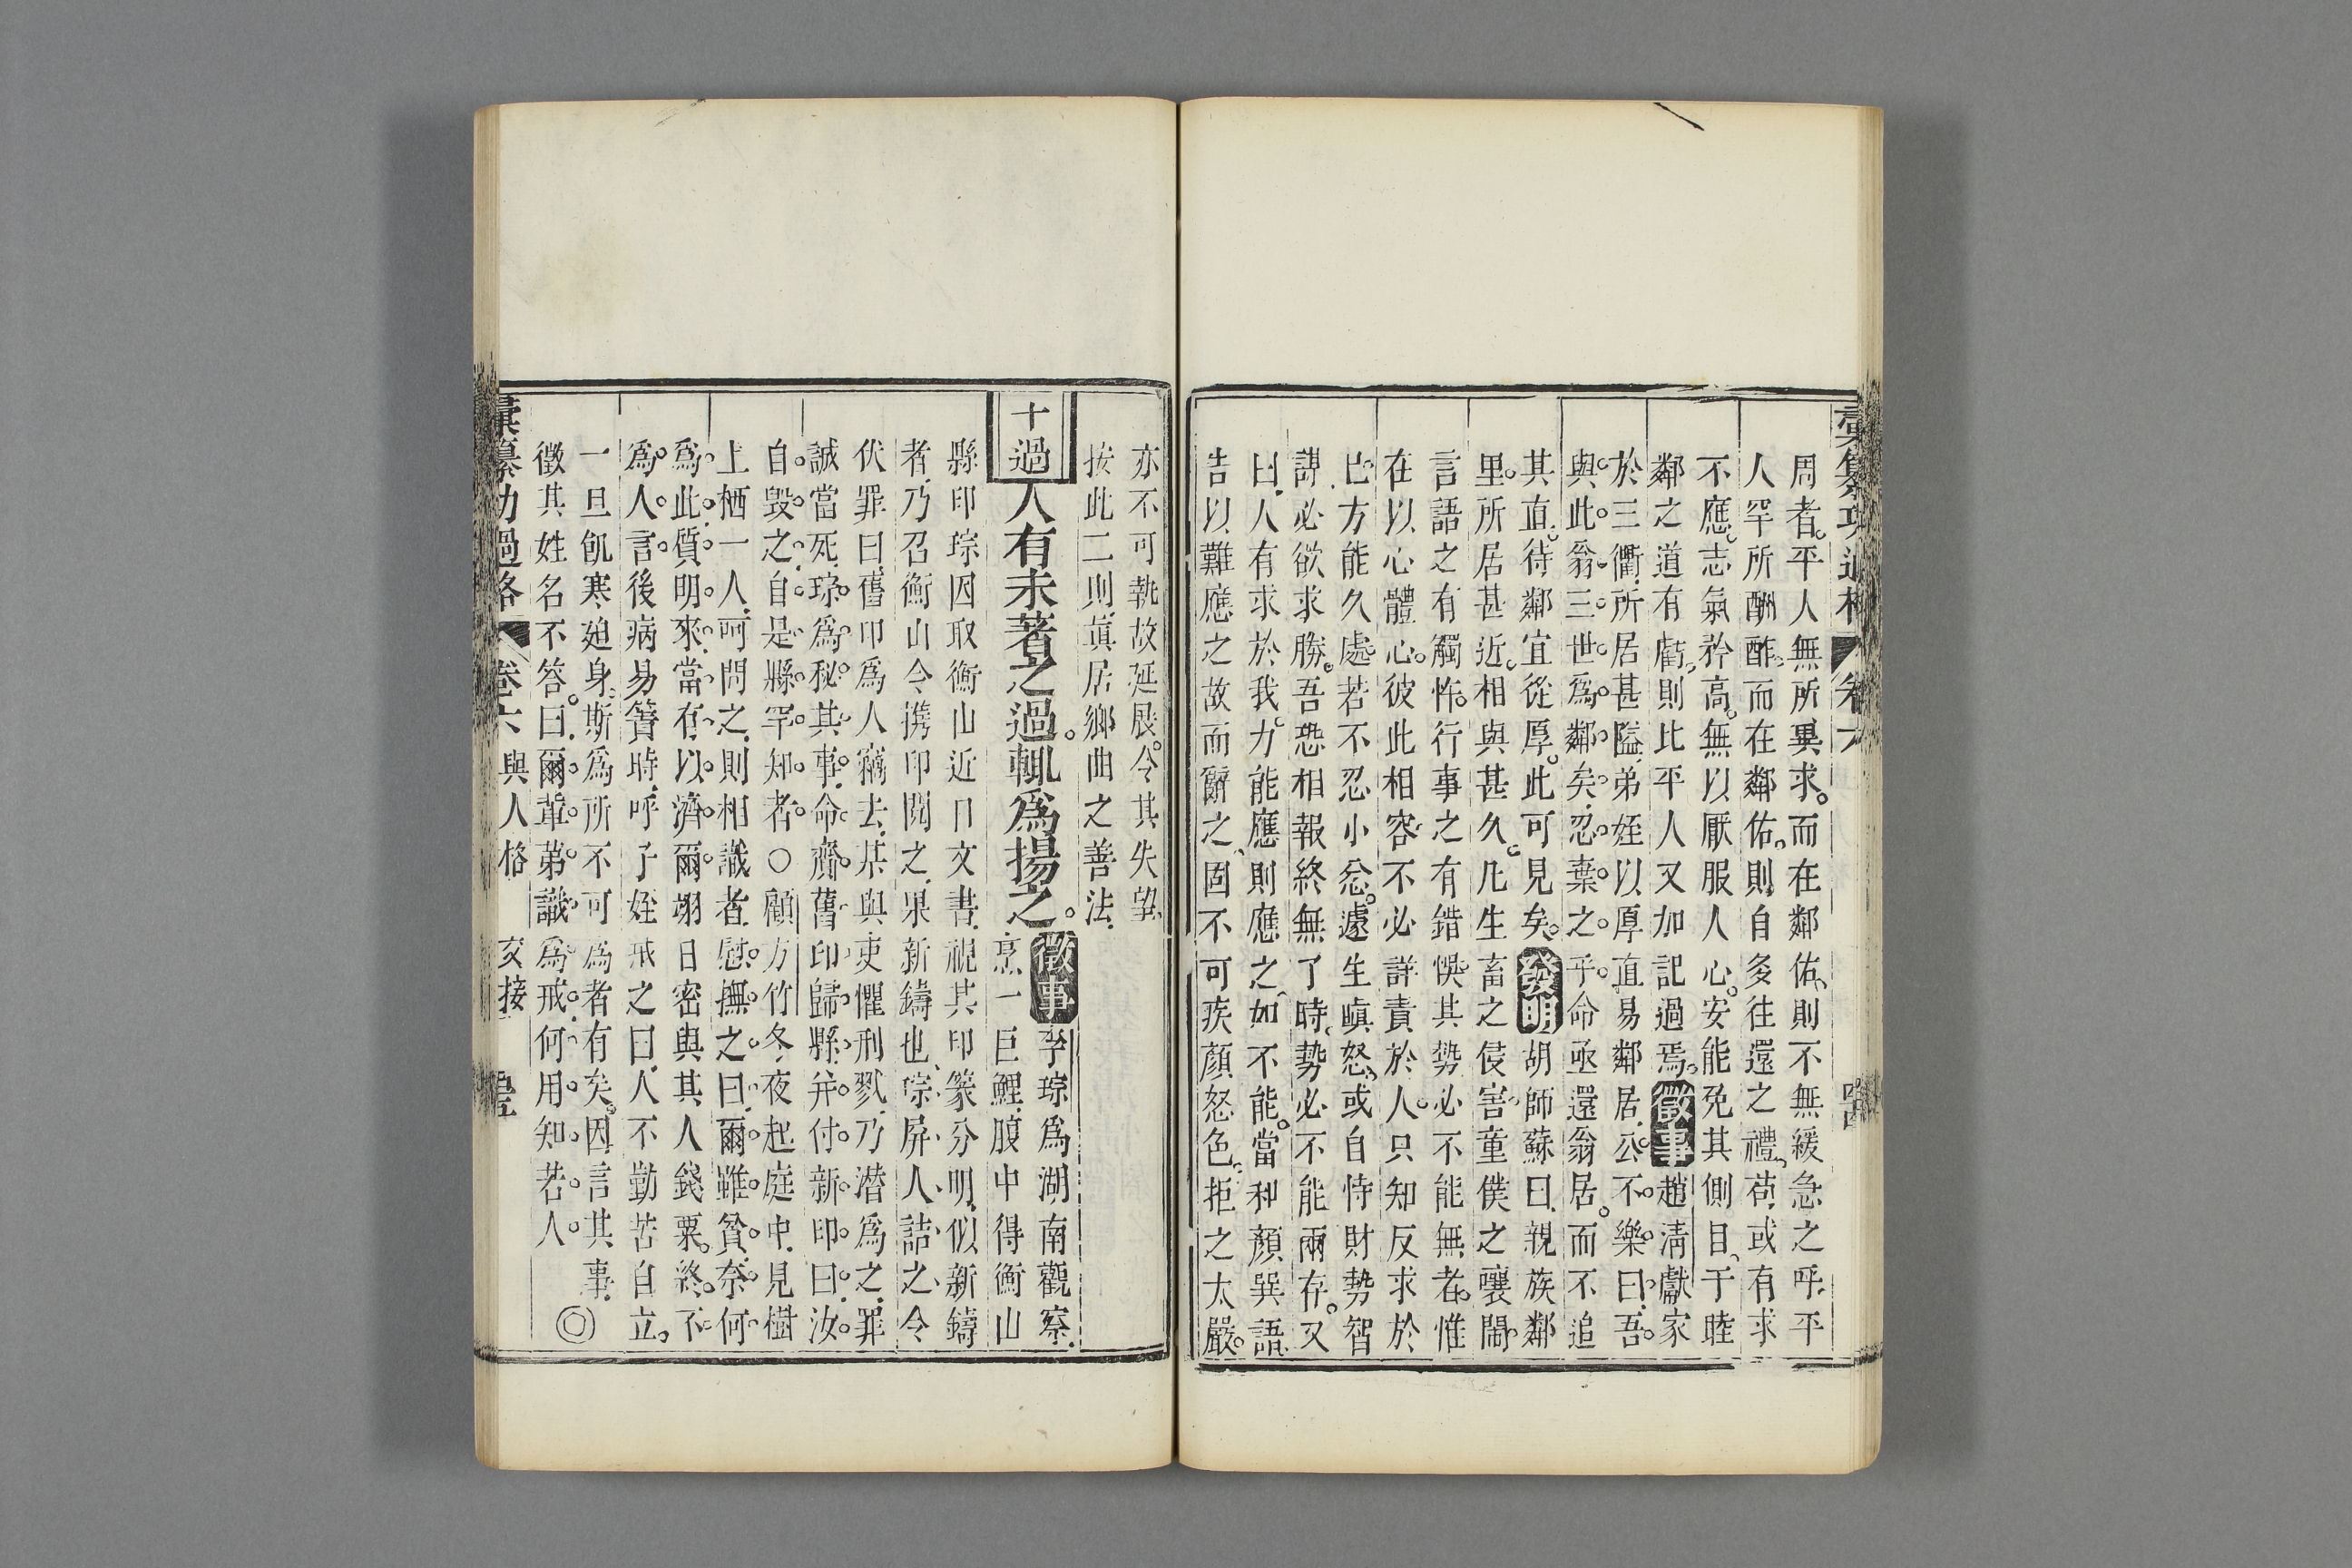 彙纂功過格 卷六
周者平人無所異求而在鄰佑則不無緩急之呼平
人罕所酬酢而在鄰佑則自多往還之禮苟或有求
不應志氣矜高無以厭服人心安能免其側目于睦
鄰之道有虧則比平人又加記過焉徵事趙清獻家
於三衢所居甚隘弟姪以厚直易鄰居公不樂曰吾
與此翁三世爲鄰矣忍棄之乎命亟還翁居而不追
其直待鄰宜從厚此可見矣發明胡師蘇曰親族鄰
里所居甚近相與甚久凡生畜之侵害童僕之嚷鬧
言語之有觸忤行事之有錯悞其勢必不能無者惟
在以心體心彼此相容不必詳責於人只知反求於
已方能久處若不忍小忿遽生嗔怒或自恃財勢智
謀必欲求勝吾恐相報終無了時勢必不能兩存又
曰人有求於我力能應則應之如不能當和顏巽語
告以難應之故而辭之固不可疾顏怒色拒之太嚴
亦不可執故延展令其失望
按此二則眞居鄉曲之善法
十過人有未著之過輒爲揚之徵事李琮爲湖南觀察
烹一巨鯉腹中得衡山
縣印琮因取衡山近日文書視其印篆分明似新鑄
者乃召衡山令携印閱之果新鑄也琮屏人詰之令
伏罪曰舊印爲人竊去某與吏懼刑戮乃潜爲之罪
誠當死琮爲秘其事命齎舊印歸縣并付新印曰汝
自毁之自是縣罕知者○顧方竹冬夜起庭中見樹
上栖一人呵問之則相識者慰撫之曰爾雖貧奈何
爲此質明來當有以濟爾翊日密與其人錢粟終不
爲人言後病易簀時呼子姪戒之曰人不勤苦自立
一旦飢寒廹身斯爲所不可為者有矣因言其事
徵其姓名不答曰爾輩弟識爲戒何用知若人 ◎
彙纂功過格 卷六 與人格 交接